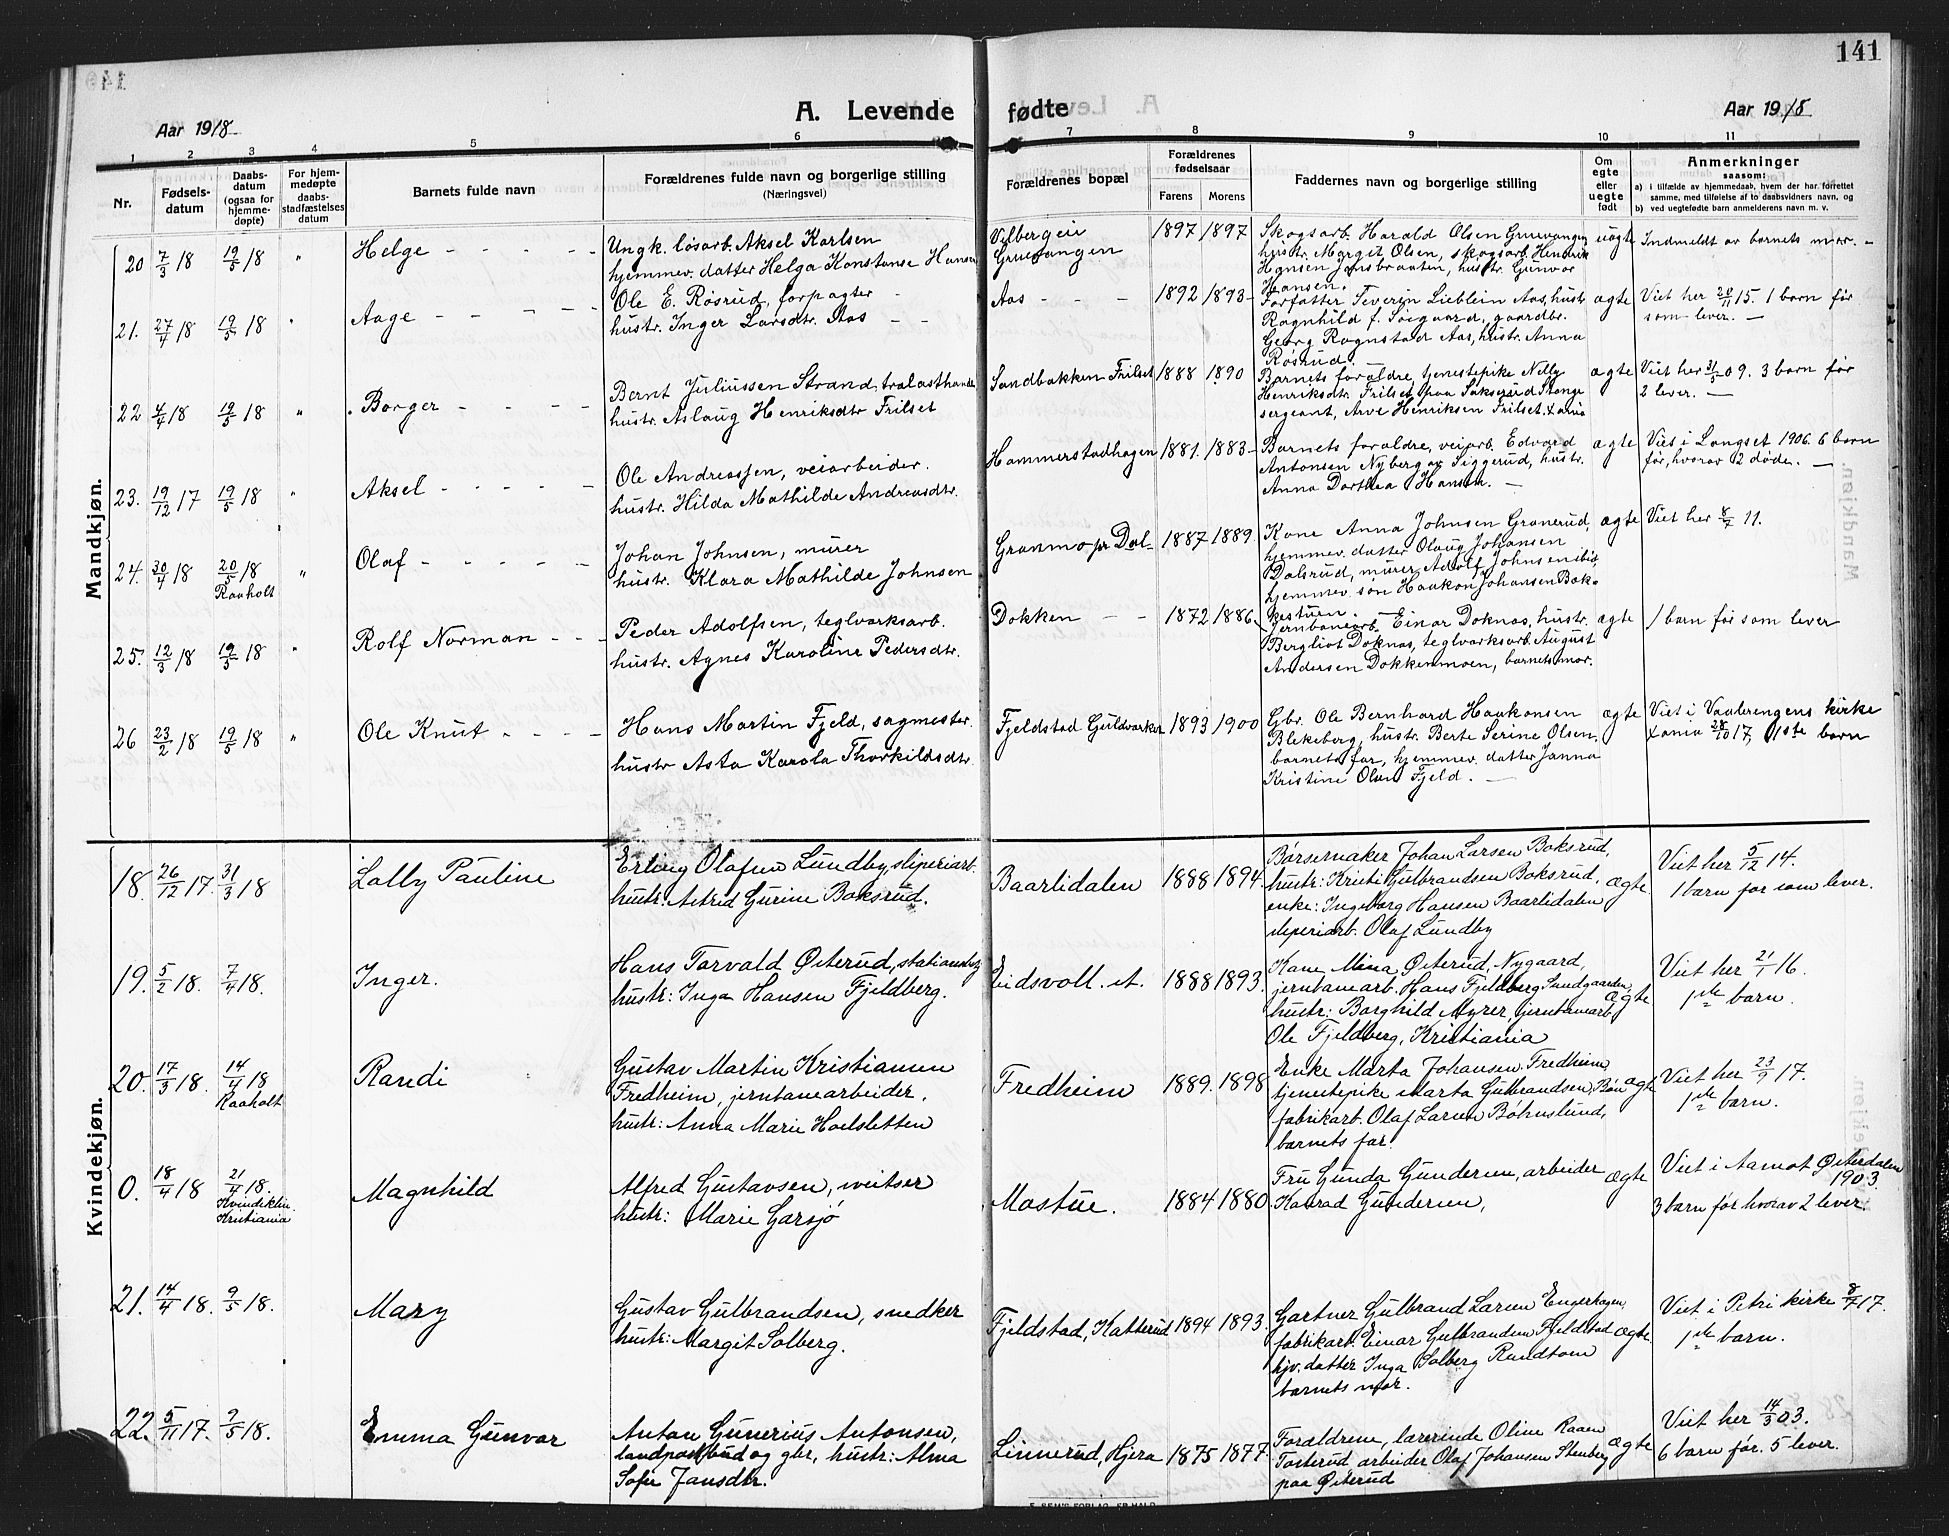 141
A. Levende fødte
Aar 1918
Aar 1918
1 2 3 4 5 6 7 8 9 10 11
Nr.
Fødsels-
datum
Daabs-
datum
(ogsaa for
hjemme-
døpte)
For hjem-
medøpte
daabs-
stadfæstelses
datum
Barnets fulde navn
Forældrenes fulde navn og borgerlige stilling
(Næringsvei)
Forældrenes bopæl
Forældrenes
fødselsaar
Farens Morens
Faddernes navn og borgerlige stilling
Om
egte
eller
uegte
født
Anmerkninger
saasom:
a) i tilfælde av hjemmedaab, hvem der har forrettet
samme, med tilføielse af to daabsvidners navn, og
b) ved uegtefødte barn anmelderens navn m. v.
Mandkjøn.
20 7/3 18 19/5 18 "
Helge
Ungk. løsarb. Aksel Karlsen
hjemmev. datter Helga Konstanse Hansen
Vilbergeie
Gruevangen
1897 1897
Skogsarb. Harald Olsen Gruevangen
hustr. Margit Olsen, skogsarb. Hendrik
Hansen Jønsbraaten, hustr. Gunvor
Hansen.
uægte
Indmeldt av barnets mor.
21. 27/4 18 19/5 18 "
Aage
Ole E. Røsrud, forpagter
hustr. Inger Larsdtr. Aas
Aas
1892 1893
Forfatter Severin Lieblein Aas, hustr.
Ragnhild f. Seigaard, gaardbr.
Georg Ragnstad Aas, hustr. Anna
Røsrud.
ægte
Viet her 20/11 15. 1 barn før
som lever.
22 4/4 18 19/5 18 "
Borger
Bernt Juliussen Strand, trælasthandl.
hustr. Aslaug Henriksdtr Frilset
Sandbakken Frilset
1888 1890
Barnets forældre, tjenestepike Nelly
Henriksdtr. Frilset paa Saksrud Stange
sergeant, Arve Henriksen Frilset. Xania
ægte
Viet her 31/5 09. 3 barn før
2 lever.
23. 19/12 17 19/5 18 "
Aksel
Ole Andreassen, veiarbeider.
hustr. Hilda Mathilde Andreasdtr.
Hammerstadhagen
1881. 1883
Barnets forældre, veiarb. Edvard
Antonsen Nyberg av Siggerud, hustr.
Anna Dorthea Hansen.
ægte
Viet i Langset 1906. 6 barn
før, hvorav 2 døde.
24. 30/4 18 20/5 18 "
Raaholt
Olaf
Johan Johnsen, murer
hustr. Klara Mathilde Johnsen
Granmo pr Dal
1887 1889.
Kone Anna Johnsen Granerud,
hjemmev. datter Olaug Johansen
Dalsrud, murer Adolf Johnsen ibid,
hjemmev. søn Haakon Johansen Bak-
kestuen.
ægte
Viet her 8/7 11.
25. 12/3 18 19/5 18 "
Rolf Norman
Peder Adolfsen, teglverksarb.
hustr. Agnes Karoline Pedersdtr.
Dokken
1872 1886.
Jernbanearb. Einar Doknas, hustr.
Bergliot Doknas, teglverksarb. August
Andersen Dokkenmoen, barnets mor.
ægte
1 barn før som lever
26 23/2 18 19/5 18 "
Ole Knut
Hans Martin Fjeld, sagmester.
hustr Asta Karola Thorkildsdtr.
Fjeldstad Guldverket
1893 1900
Gbr. Ole Bernhard Haakonsen
Blekeberg, hustr. Berte Serine Olsen,
barnets far, hjemmev. datter Janna
Kristine Olsen Fjeld.
ægte
Viet i Vaalerengens kirke
Xania 28/10 17, 1ste barn
Kvindekjøn.
18. 26/12 17. 31/3 18
Lally Pauline
Erling Olafsen Lundby, sliperiarb.
hustr. Astrid Gurine Boksrud.
Baarlidalen
1888 1894.
Børsemaker Johan Larsen Boksrud,
hustr: Kristi Gulbrandsen Boksrud,
enke: Ingeborg Hansen Baarlidalen
sliperiarb. Olaf Lundby
ægte
Viet her 5/12 14.
1 barn før som lever.
19. 5/2 18. 7/4 18.
Inger.
Hans Torvald Østerud, stationsbetj
hustr: Inga Hansen Fjeldberg.
Eidsvoll. st.
1888 1893.
Kone Mina Østerud, Nygaard,
jernbanearb. Hans Fjeldberg Sandgaarden,
hustr: Borghild Myrer, jernbanearb
Ole Fjeldberg, Kristiania
ægte
Viet her 21/1 16.
1ste barn.
20. 17/3 18. 14/4 18
Raaholt
Randi
Gustav Martin Kristiansen
Fredheim, jernbanearbeider.
hustr: Anna Marie Hoelsletten
Fredheim
1889. 1898
Enke Marta Johansen Fredheim,
tjenestepike Marta Gulbrandsen, Bøn
fabrikarb. Olaf Larsen Bøhnslund,
barnets far.
ægte
Viet her 23/9 17.
1ste barn.
0. 18/4 18 21/4 18.
Kvindeklin.
Kristiania
Magnhild
Alfred Gustavsen, sveitser
hustr: Marie Garsjø
Mostue.
1884 1880.
Fru Gunda Gundersen, arbeider
Konrad Gundersen,
ægte
Viet i Aamot Østerdalen
1903
3 barn før hvorav 2 lever.
21. 14/4 18. 9/5 18.
Mary
Gustav Gulbrandsen, snedker
hustr: Margit Solberg.
Fjeldstad, Katterud
1894 1893.
Gartner Gulbrand Larsen Engerhagen,
fabrikarb. Einar Gulbrandsen Fjeldstad
hjv. datter Inga Solberg Randtom
barnets mor.
ægte
Viet i Petri kirke 8/7 17.
1ste barn.
22. 5/11 17. 9/5 18.
Emma Gunvor
Anton Gunerius Antonsen,
landpostbud og gbr, hustr: Alma
Sofie Jansdtr.
Linnerud, Hjera
1875 1877.
Forældrene, lærerinde Oline Raaen
Tosterud arbeider Olaf Johansen Stenberg
paa Østerud
ægte
Viet her 14/3 03.
6 barn før. 5 lever.